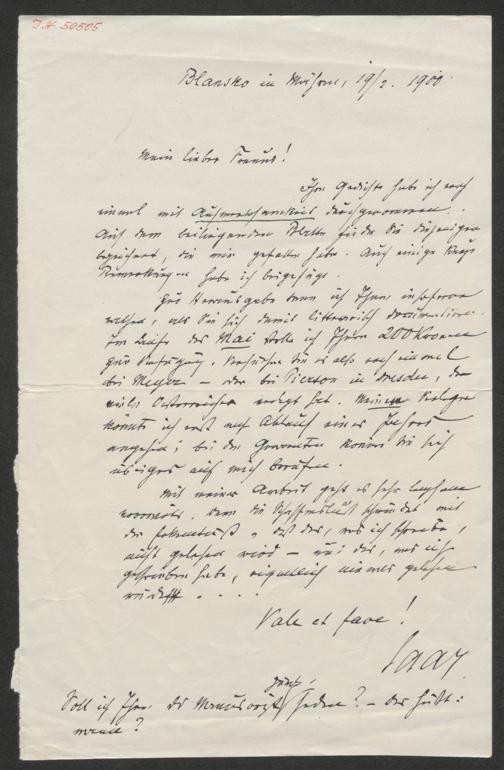 I.N. 50505
Blansko in Mähren, 19/2. 1900.
Mein lieber Freund!
Ihre Gedichte habe ich noch
einmal mit Aufmerksamkeit durchgenommen.
Auf dem beiliegenden Blatte finden Sie diejenigen
bezeichnet, die mir gefallen haben. Auch einige
Bemerkungen habe ich beigefügt.
Zur Herausgabe kann ich Ihnen insoferne
rathen, als Sie sich damit litterarisch
Im Laufe des Mai stelle ich Ihnen 200 Kronen
zur Verfügung. Versuchen Sie es also noch einmal
bei Meyer – oder bei Pierson in Dresden, der
viele Oesterreicher verlegt hat. Meinen Verleger
könnte ich erst nach Ablauf eines Jahres
angehen; bei den Genannten können Sie sich
übrigens auf mich berufen.
Mit meiner Arbeit geht es sehr langsam
vorwärts, denn die schwindet mit
der Erkenntniß, daß das, was ich schreibe,
nicht gelesen wird – und das, was ich
geschrieben habe, eigentlich niemals gelesen
wurde . . . .
Vale et fave!
Saar
Soll ich Ihnen das Manuscript senden? – Oder